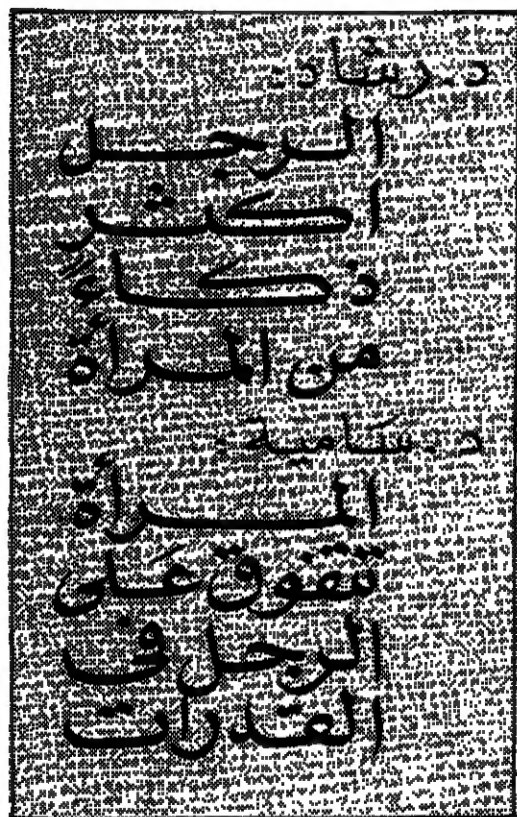 د. رشاد:
الرجل
اكثر
ذكاءً
من المرأة
د. سَامية:
المرأة
تتفوق عَلى
الرجل في
القدرات